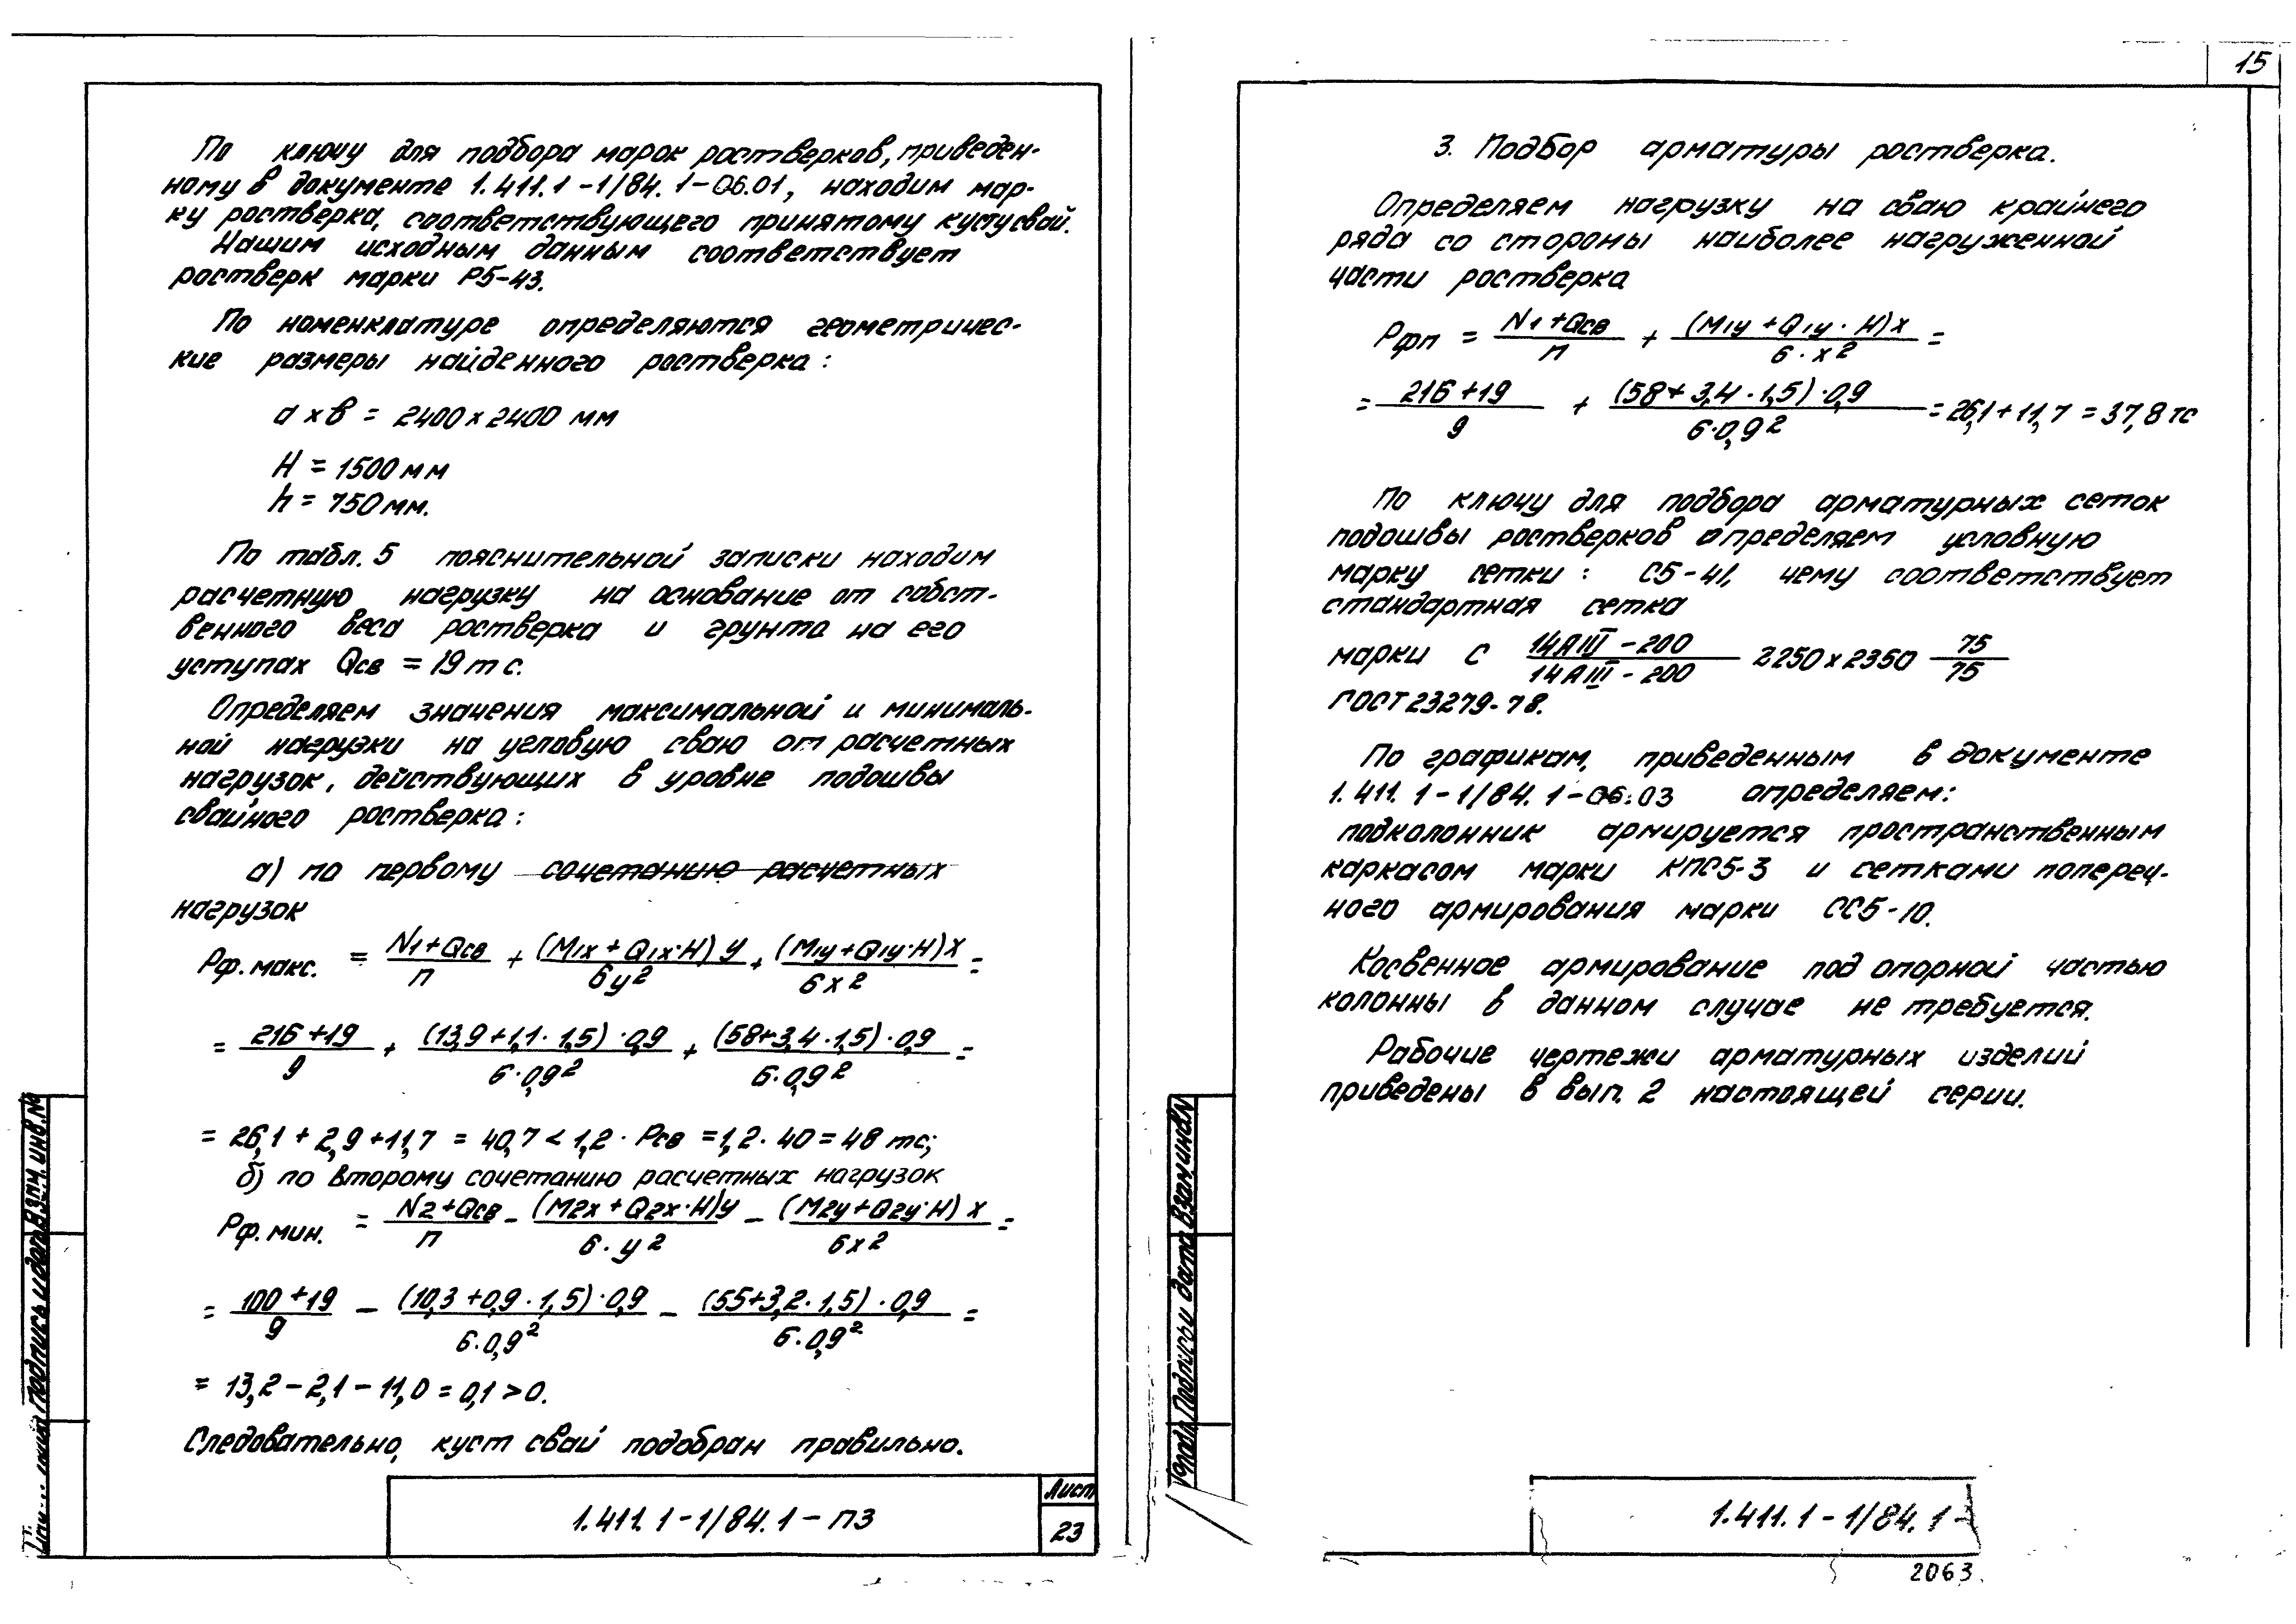 По ключу для подбора марок ростверков, приведен-
ному в документе 1.411.1-1/84.1-06.01, находим мар-
ку ростверка, соответствующего принятому кусту свай.
Нашим исходным данным соответствует
ростверк марки Р5-43.
По номенклатуре определяются геометричес-
кие размеры найденного ростверка:
a x b = 2400 x 2400 мм
H = 1500 мм
h = 750 мм.
По табл. 5 пояснительной записки находим
расчетную нагрузку на основание от собст-
венного веса ростверка и грунта на его
уступах Qсв = 19 тс.
Определяем значения максимальной и минималь-
ной нагрузки на угловую сваю от расчетных
нагрузок, действующих в уровне подошвы
свайного ростверка:
а) по первому сочетанию расчетных
нагрузок
Рф.макс. = (N1+Qсв)/п + (M1x + Q1x·H) y/6y² + (M1y+Q1y·H) x/6x² =
= (216+19)/9 + (13,9+1,1·1,5)·0,9/6·0,9² + (58+3,4·1,5)·0,9/6·0,9² =
= 26,1 + 2,9 + 11,7 = 40,7 < 1,2 · Рсв = 1,2 · 40 = 48 тс;
б) по второму сочетанию расчетных нагрузок
Рф.мин. = (N2+Qсв)/п - (M2x + Q2x·H) y/6·y² - (M2y+Q2y·H) x/6x² =
= (100+19)/9 - (10,3+0,9·1,5)·0,9/6·0,9² - (55+3,2·1,5)·0,9/6·0,9² =
= 13,2 - 2,1 - 11,0 = 0,1 > 0.
Следовательно, куст свай подобран правильно.
1.411.1-1/84.1-ПЗ
Лист
23
Подпись и дата
Взам.инв.№
15
3. Подбор арматуры ростверка.
Определяем нагрузку на сваю крайнего
ряда со стороны наиболее нагруженной
части ростверка
Рфп = (N1+Qсв)/п + (M1y + Q1y · H) x/6·x² =
= (216+19)/9 + (58+3,4·1,5)·0,9/6·0,9² = 26,1 + 11,7 = 37,8 тс
По ключу для подбора арматурных сеток
подошвы ростверков определяем условную
марку сетки: С5-41, чему соответствует
стандартная сетка
марки С 14АIII-200/14АIII-200 2250 x 2350 75/75
ГОСТ 23279-78.
По графикам, приведенным в документе
1.411.1-1/84.1-06.03 определяем:
подколонник армируется пространственным
каркасом марки КПС5-3 и сетками попереч-
ного армирования марки СС5-10.
Косвенное армирование под опорной частью
колонны в данном случае не требуется.
Рабочие чертежи арматурных изделий
приведены в вып. 2 настоящей серии.
Подпись и дата
Взам.инв.№
1.411.1-1/84.1-
2063